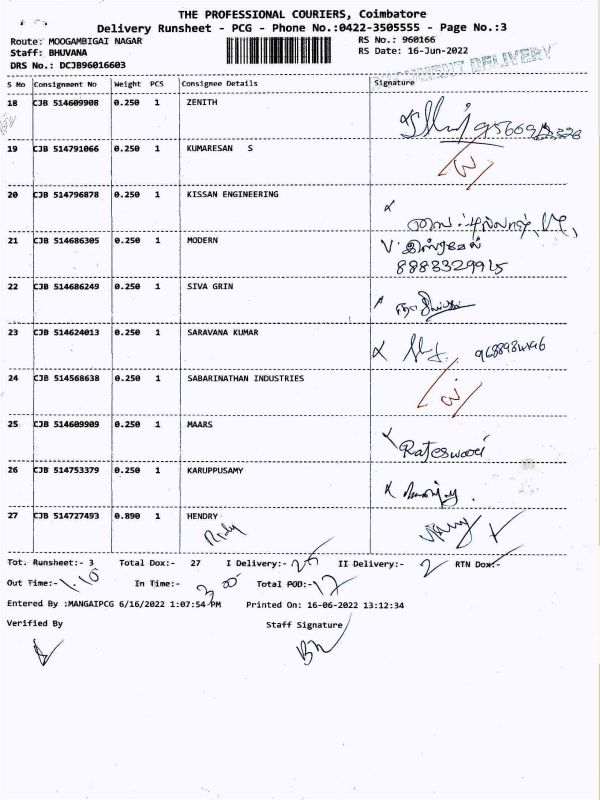 THE PROFESSIONAL COURIERS, Coimbatore
Delivery Runsheet - PCG - Phone No.:0422-3505555 - Page No.:3
Route: MOOGAMBIGAI NAGAR RS No.: 960166
Staff: BHUVANA RS Date: 16-Jun-2022
DRS No.: DCJB96016603 DELIVERY
S No Consignment No Weight PCS Consignee Details Signature
18 CJB 514609908 0.250 1 ZENITH
19 CJB 514791066 0.250 1 KUMARESAN S
20 CJB 514796878 0.250 1 KISSAN ENGINEERING
21 CJB 514686305 0.250 1 MODERN
8883329915
22 CJB 514686249 0.250 1 SIVA GRIN
23 CJB 514624013 0.250 1 SARAVANA KUMAR
24 CJB 514568638 0.250 1 SABARINATHAN INDUSTRIES
25 CJB 514609909 0.250 1 MAARS
Rajeswari
26 CJB 514753379 0.250 1 KARUPPUSAMY
27 CJB 514727493 0.890 1 HENDRY
Tot. Runsheet:- 3 Total Dox:- 27 I Delivery:- 25 II Delivery:- 2 RTN Dox:-
Out Time:- 1.10 In Time:- 3.00 Total POD:- 17
Entered By :MANGAIPCG 6/16/2022 1:07:54 PM Printed On: 16-06-2022 13:12:34
Verified By Staff Signature